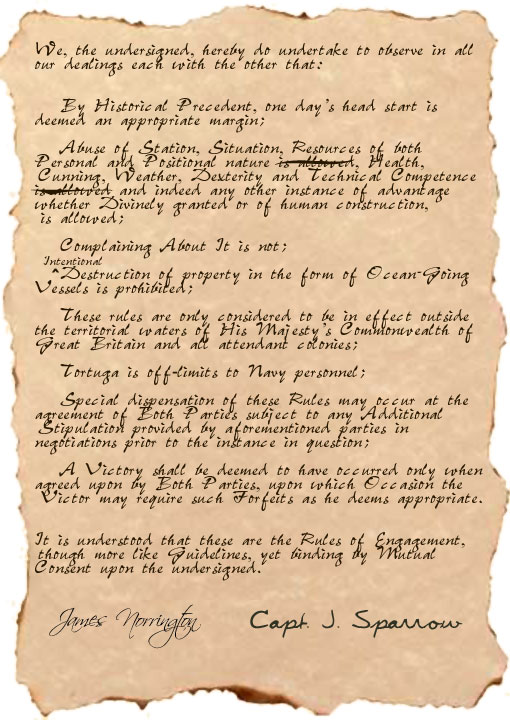 We, the undersigned, hereby do undertake to observe in all
our dealings each with the other that:
By Historical Precedent, one day's head start is
deemed an appropriate margin;
Abuse of Station, Situation, Resources of both
Personal and Positional nature is allowed, Health,
Cunning, Weather, Dexterity and Technical Competence
is allowed and indeed any other instance of advantage
whether Divinely granted or of human construction,
is allowed;
Complaining About It is not;
Intentional
^Destruction of property in the form of Ocean-Going
Vessels is prohibited;
These rules are only considered to be in effect outside
the territorial waters of His Majesty's Commonwealth of
Great Britain and all attendant colonies;
Tortuga is off-limits to Navy personnel;
Special dispensation of these Rules may occur at the
agreement of Both Parties subject to any Additional
Stipulation provided by aforementioned parties in
negotiations prior to the instance in question;
A Victory shall be deemed to have occurred only when
agreed upon by Both Parties, upon which Occasion the
Victor may require such Forfeits as he deems appropriate.
It is understood that these are the Rules of Engagement,
though more like Guidelines, yet binding by Mutual
Consent upon the undersigned.
James Norrington
Capt. J. Sparrow